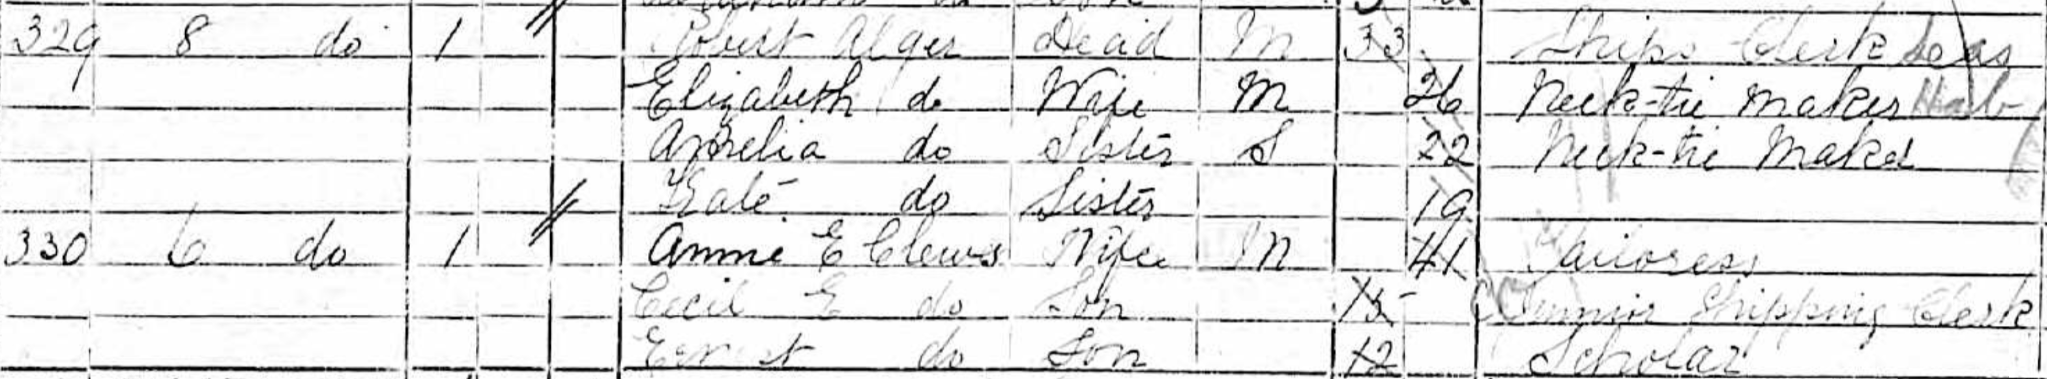 329 8 do 1 Robert Alger Head M 33 Ships Clerk Seas
Elizabeth do Wife M 26 Neck-tie Maker
Amelia do Sister S 22 Neck-tie Maker
Kate do Sister 19
330 6 do 1 Annie E Clews Wife M 41 Tailoress
Cecil E do Son 15 Junior Shipping Clerk
Ernest do Son 12 Scholar